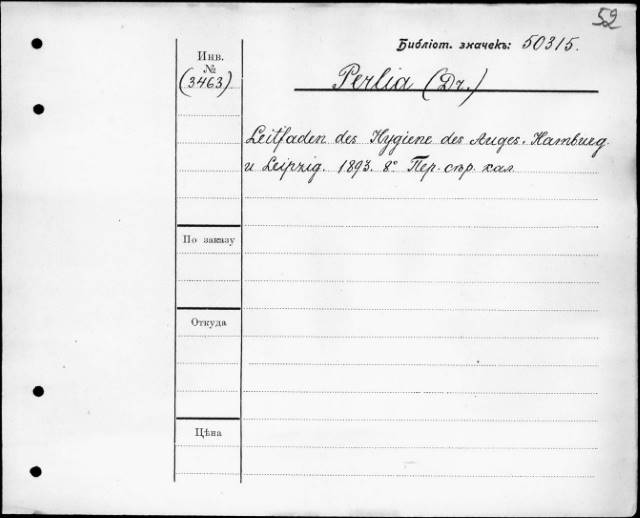 52
Библіот. значекъ: 50315.
Инв.
№
(3463)
Perlia (Dr.)
Leitfaden des Hygiene des Auges. Hamburg
u Leipzig. 1893. 8° Пер. сѣр. кал
По заказу
Откуда
Цѣна